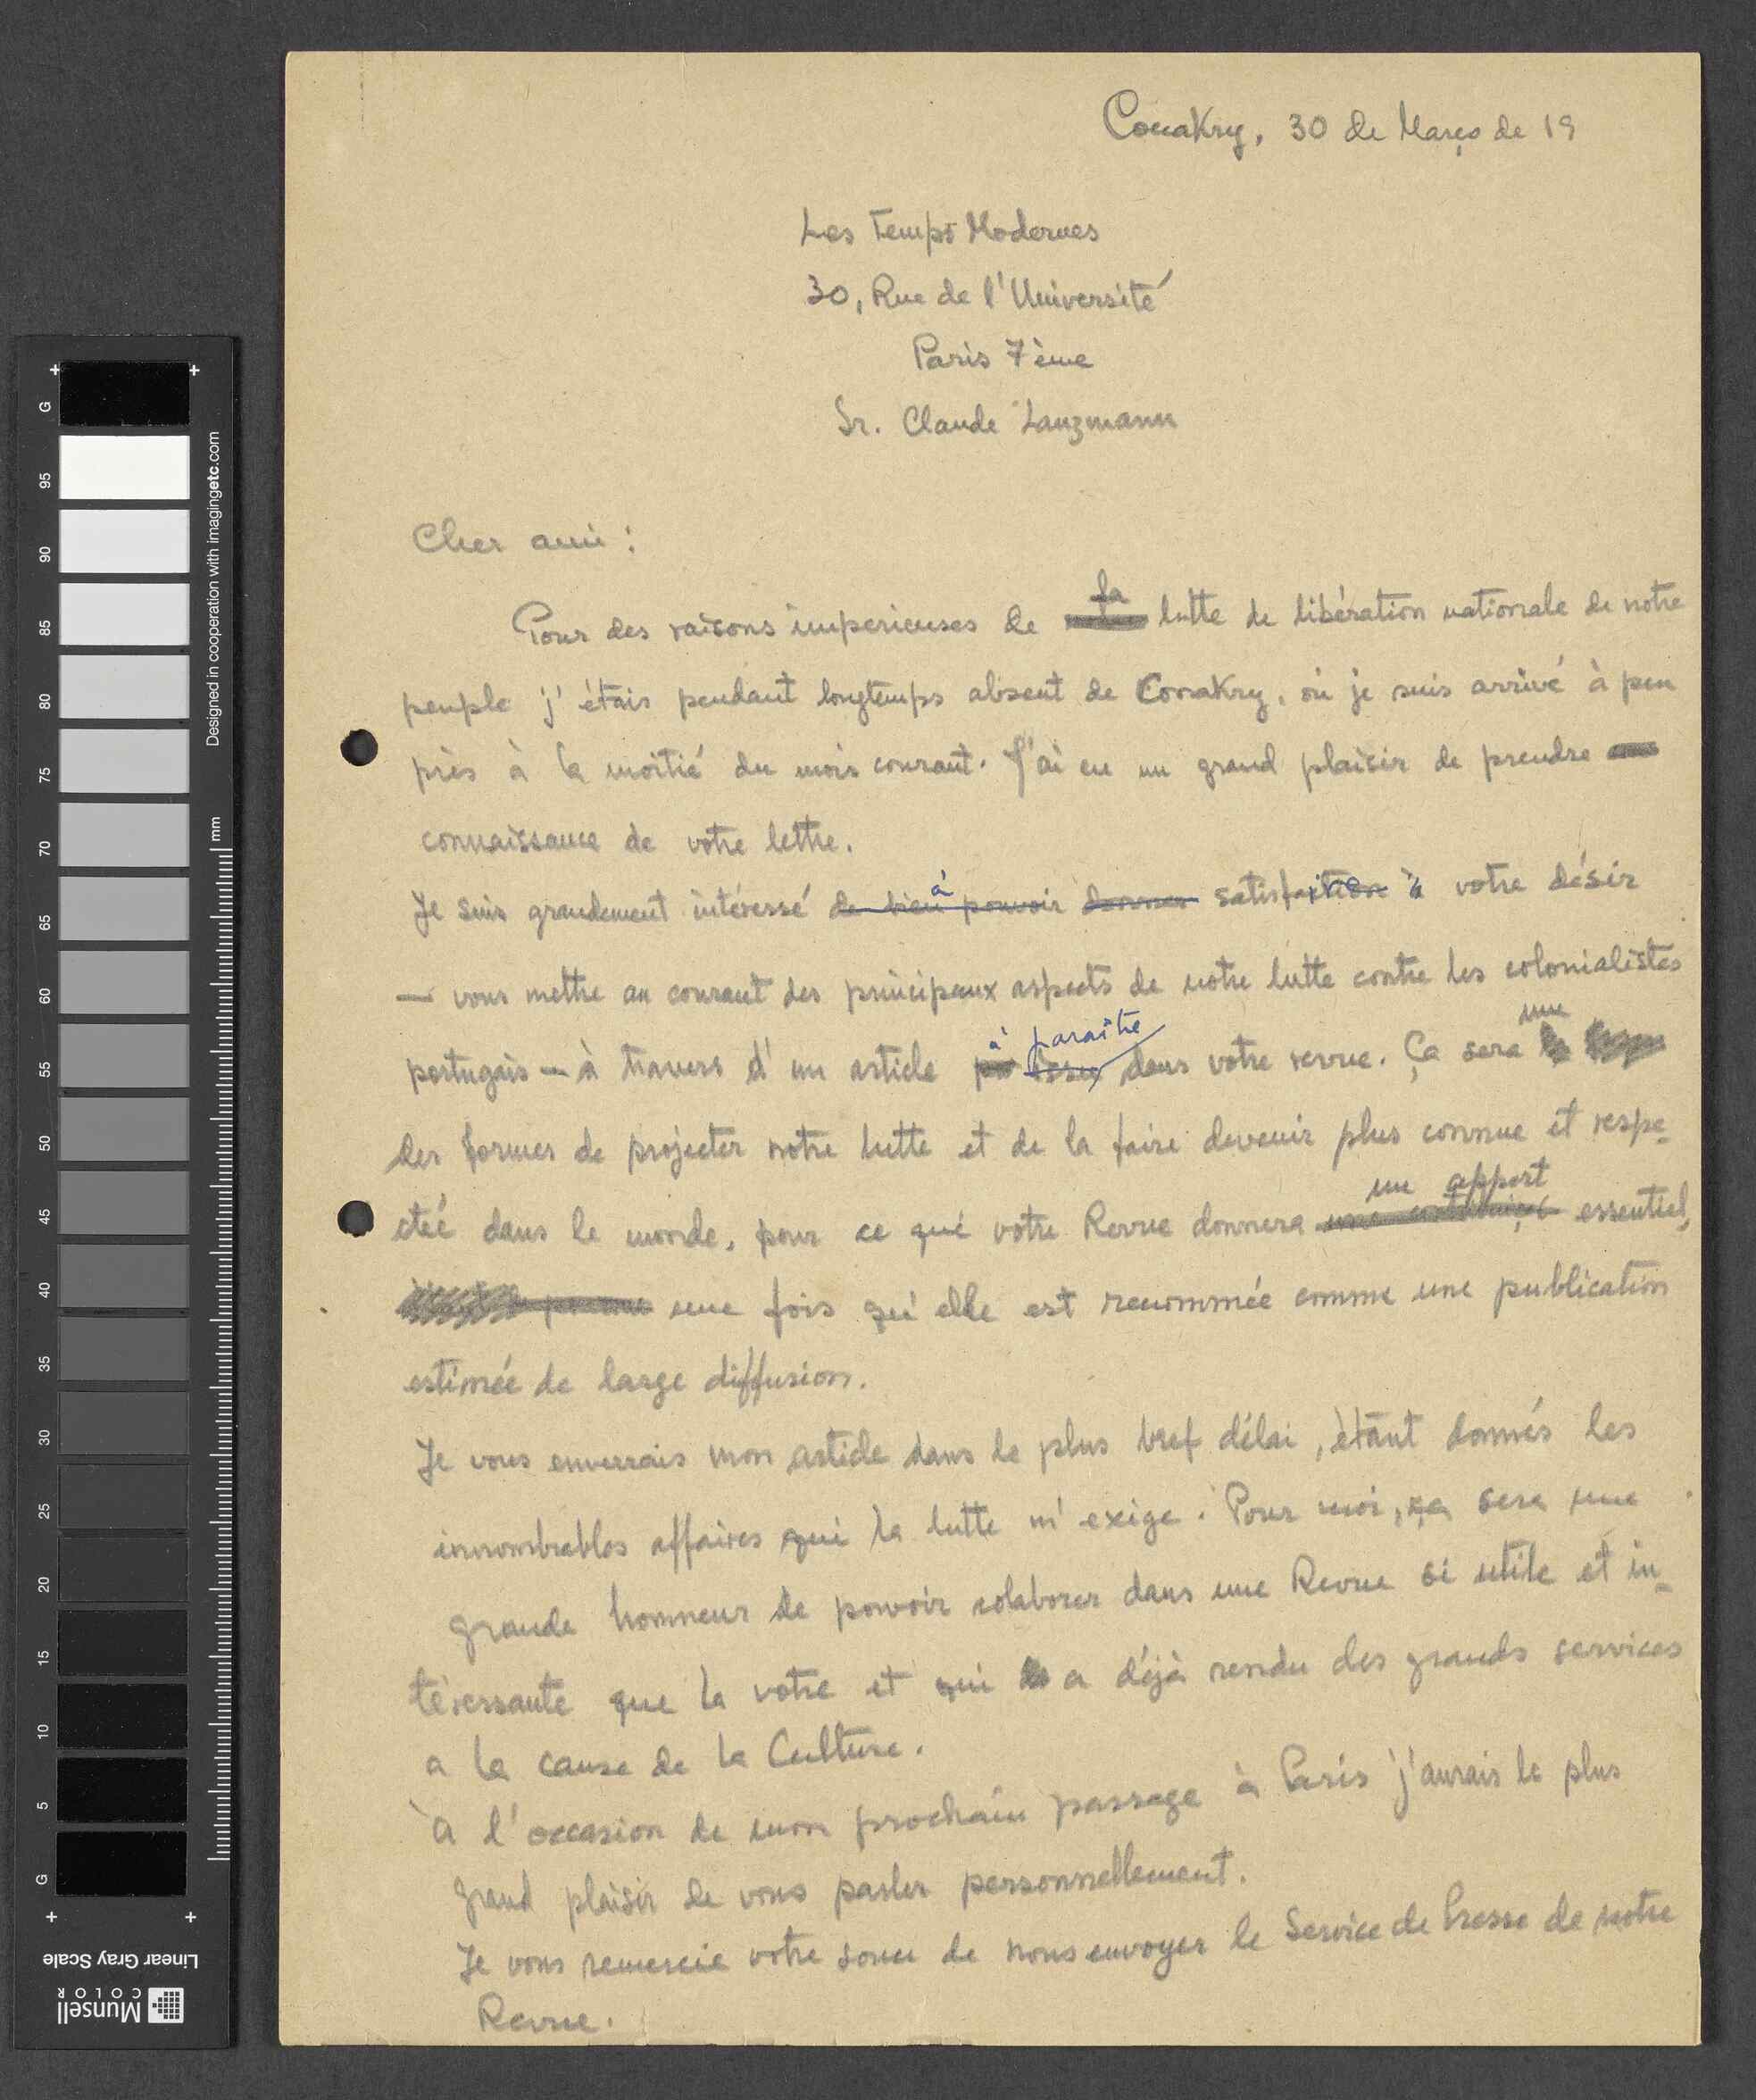 Conakry, 30 de Março de 19
Les Temps Modernes
30, Rue de l'Université
Paris 7ème
Sr. Claude Lanzmann
Cher ami :
Pour des raisons imperieuses de la lutte de libération nationale de notre
peuple j'étais pendant longtemps absent de Conakry, où je suis arrivé à peu
près à la moitié du mois courant. J'ai eu un grand plaisir de prendre
connaissance de votre lettre.
Je suis grandement intéressé de bien à pouvoir donner satisfaire à votre désir
— vous mettre au courant des principaux aspects de notre lutte contre les colonialistes
portugais — à travers d'un article à paraître dans votre revue. Ça sera une
des formes de projecter notre lutte et de la faire devenir plus connue et respe-
cteé dans le monde, pour ce qué votre Revue donnera un apport essentiel,
une fois qu'elle est renommée comme une publication
estimée de large diffusion.
Je vous enverrais mon article dans le plus bref délai, ètant donnés les
innombrables affaires qui la lutte m'exige. Pour moi, ça sera une
grande homneur de pouvoir colaborer dans une Revue si utile et in-
téressante que la votre et qui a déjà rendu des grands services
a la cause de la Culture.
À l'occasion de mon prochain passage à Paris j'aurais le plus
grand plaisir de vous parler personnellement.
Je vous remercie votre souci de nous envoyer le Service de Presse de notre
Revue.
G
95
90
85
80
75
70
65
60
55
50
45
40
35
30
25
20
15
10
5
G
mm
Designed in cooperation with imagingetc.com
Linear Gray Scale
Munsell
COLOR